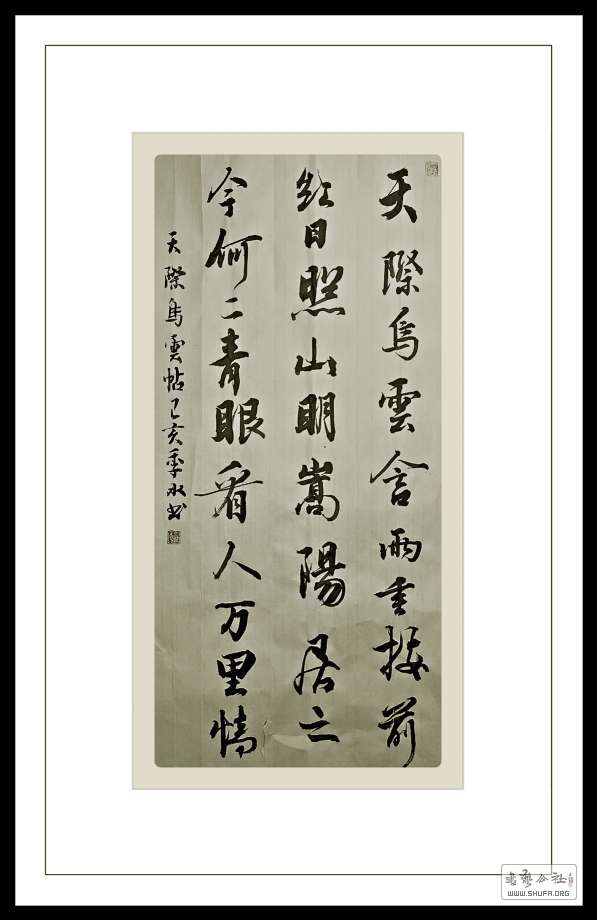 天際烏雲含雨重樓前
紅日照山明嵩陽居士
今何在青眼看人万里情
天際烏雲帖己亥季水书
书艺公社
WWW.SHUFA.ORG